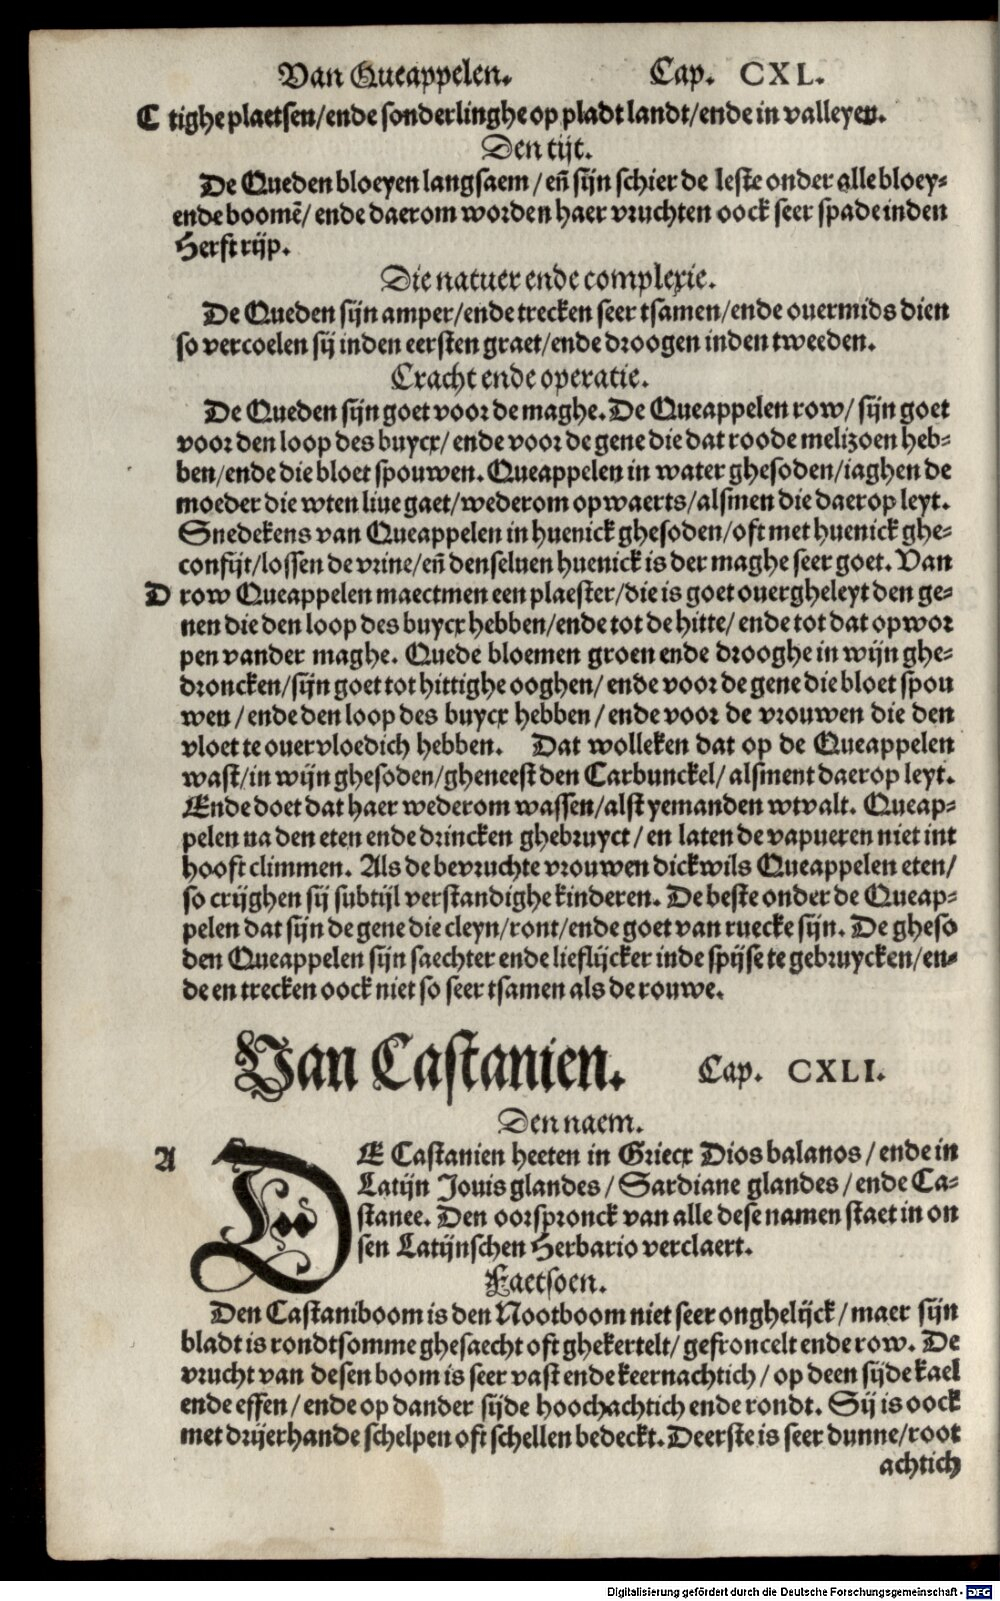 Van Queappelen. Cap. CXL.
C tighe plaetsen/ende sonderlinghe op pladt landt/ende in valleyen.
Den tijt.
De Queden bloeyen langsaem/ eñ sijn schier de leste onder alle bloey-
ende boomẽ/ ende daerom worden haer vruchten oock seer spade inden
Herfst rijp.
Die natuer ende complexie.
De Queden sijn amper/ende trecken seer tsamen/ende ouermids dien
so vercoelen sij inden eersten graet/ende droogen inden tweeden.
Cracht ende operatie.
De Queden sijn goet voor de maghe. De Queappelen row/ sijn goet
voor den loop des buycx/ ende voor de gene die dat roode melizoen heb-
ben/ende die bloet spouwen. Queappelen in water ghesoden/iaghen de
moeder die wten liue gaet/wederom opwaerts/alsmen die daer op leyt.
Snedekens van Queappelen in huenick ghesoden/oft met huenick ghe-
confijt/lossen de vrine/eñ denseluen huenick is der maghe seer goet. Van
D row Queappelen maectmen een plaester/die is goet ouergheleyt den ge-
nen die den loop des buycx hebben/ende tot de hitte/ ende tot dat opwor
pen vander maghe. Quede bloemen groen ende drooghe in wijn ghe-
droncken/sijn goet tot hittighe ooghen/ ende voor de gene die bloet spou
wen/ ende den loop des buycx hebben/ ende voor de vrouwen die den
vloet te ouervloedich hebben. Dat wolleken dat op de Queappelen
wast/in wijn ghesoden/gheneest den Carbunckel/ alsment daer op leyt.
Ende doet dat haer wederom wassen/alst yemanden wtvalt. Queap-
pelen na den eten ende drincken ghebruyct/ en laten de vapueren niet int
hooft climmen. Als de bevruchte vrouwen dickwils Queappelen eten/
so crijghen sij subtijl verstandighe kinderen. De beste onder de Queap-
pelen dat sijn de gene die cleyn/ront/ende goet van ruecke sijn. De gheso
den Queappelen sijn saechter ende lieflijcker inde spijse te gebruycken/en-
de en trecken oock niet so seer tsamen als de rouwe.
Van Castanien. Cap. CXLI.
Den naem.
A DE Castanien heeten in Griecx Dios balanos/ ende in
Latijn Jouis glandes/ Sardiane glandes/ ende Ca-
stanee. Den oorspronck van alle dese namen staet in on
sen Latijnschen Herbario verclaert.
Faetsoen.
Den Castaniboom is den Nootboom niet seer onghelijck/ maer sijn
bladt is rondtsomme ghesaecht oft ghekertelt/ gefroncelt ende row. De
vrucht van desen boom is seer vast ende keernachtich/ op deen sijde kael
ende effen/ ende op dander sijde hoochachtich ende rondt. Sij is oock
met drijerhande schelpen oft schellen bedeckt. Deerste is seer dunne/root
achtich
Digitalisierung gefördert durch die Deutsche Forschungsgemeinschaft - DFG